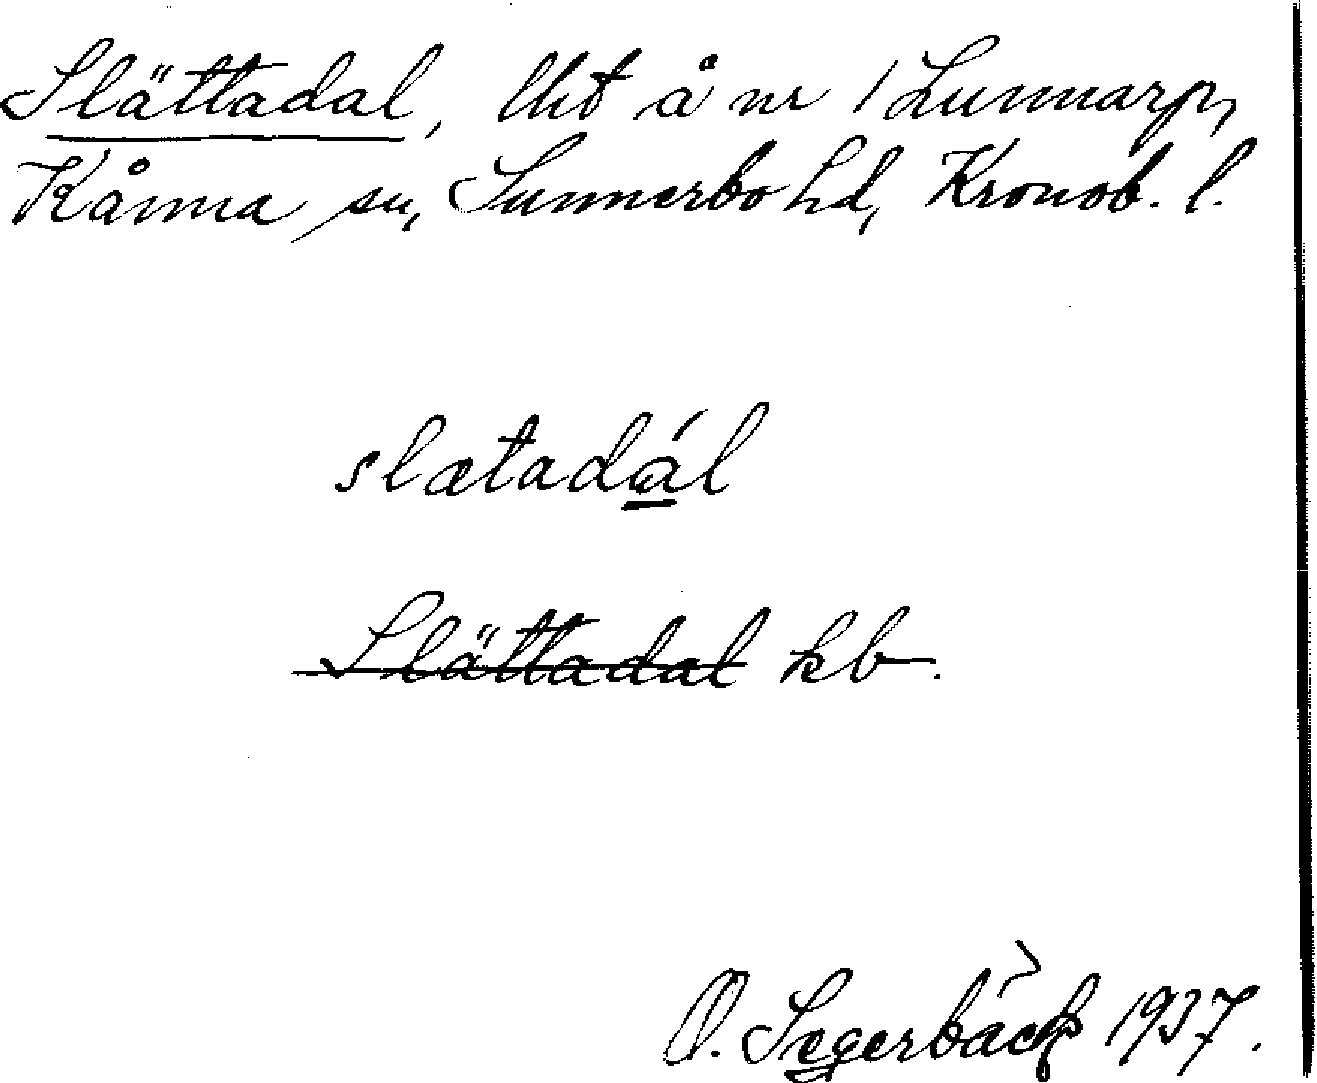 Slättadal, lht å nr 1 Lunnarp,
Kånna sn, Sunnerbo hd, Kronob. l.
slætadál
Slättadal kb.
O. Segerbäck 1937.